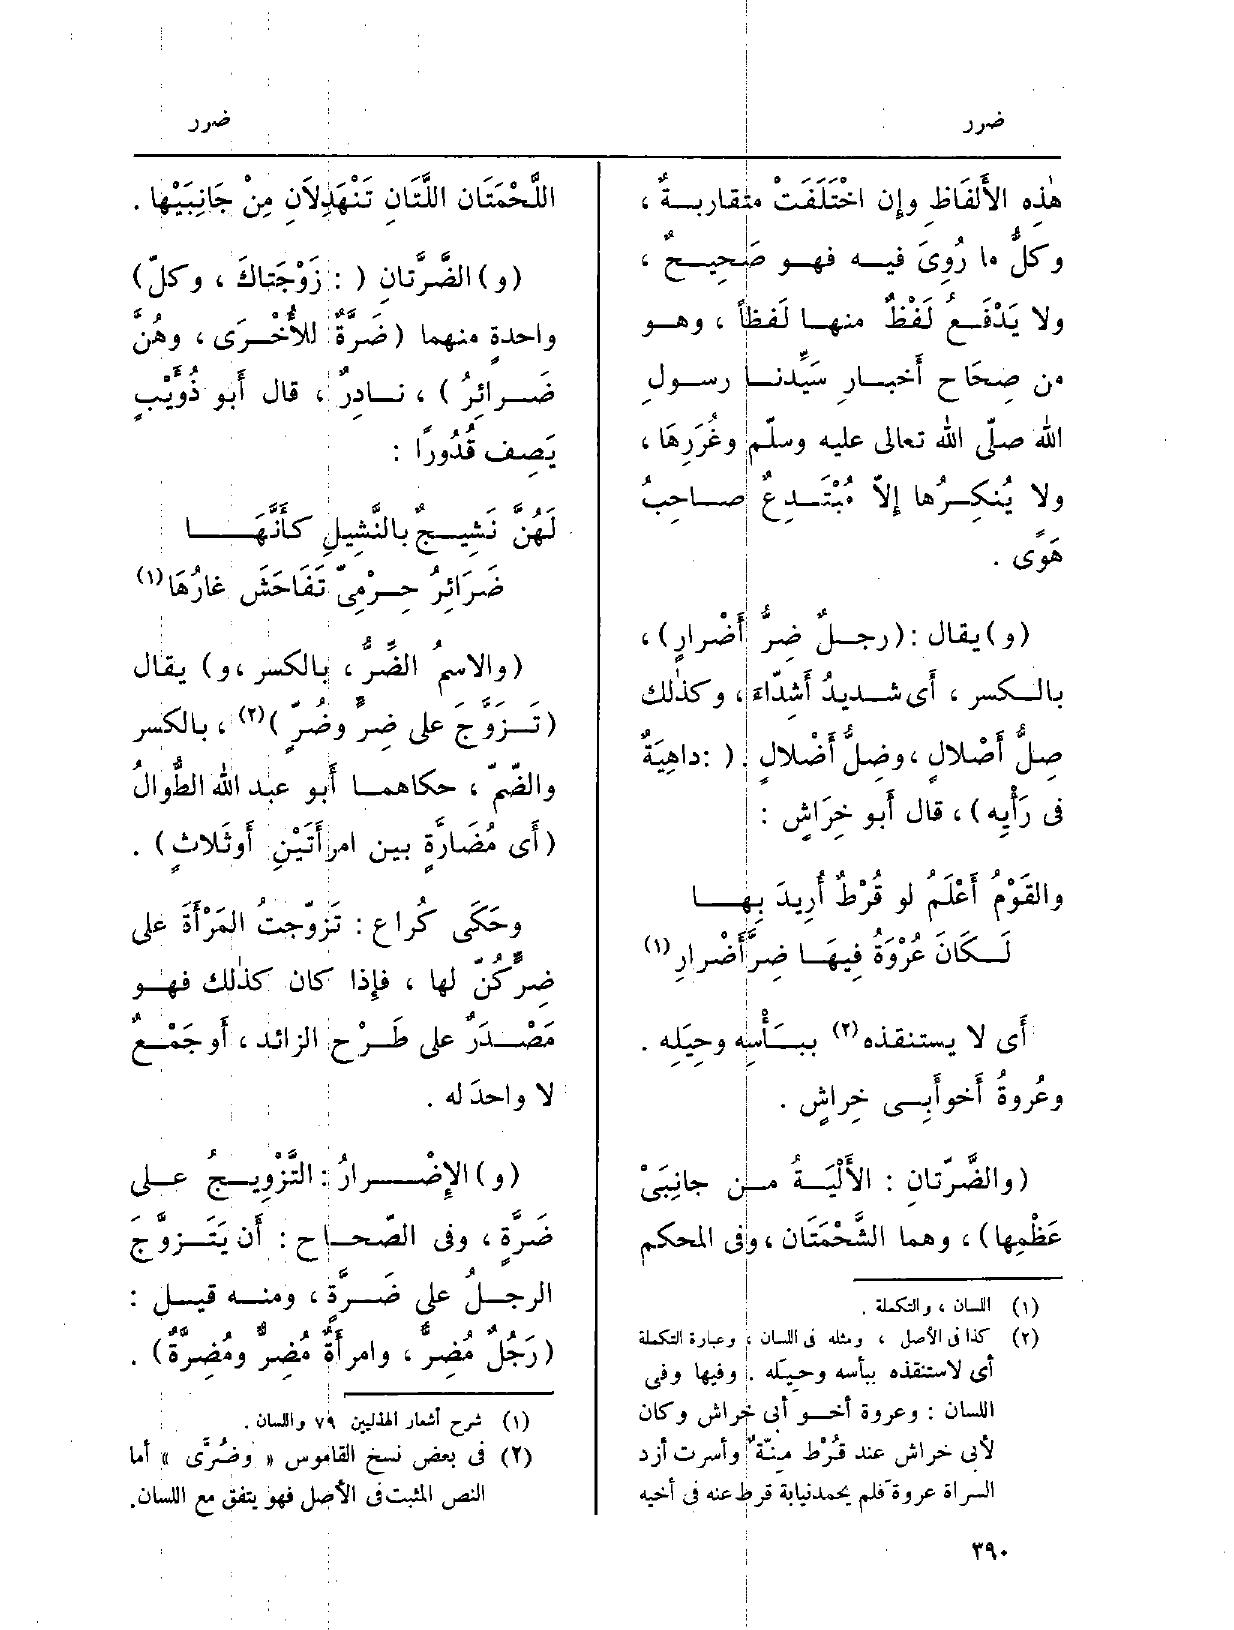 ضرر
ضرر
هٰذِه الأَلْفَاظِ وإِن اخْتَلَفَتْ متقاربــةٌ ،
وكلُّ ما رُوِىَ فيــه فهــو صَحِيــحٌ ،
ولا يَدْفَــعُ لَفْظٌ منهــا لَفظاً ، وهــو
من صِحَاح أَخبــار سَيِّدنــا رســولِ
الله صلّى الله تعالى عليه وسلّم وغُرَرِهَا ،
ولا يُنكِــرُها إِلاّ مُبْتَــدِعٌ صــاحِبُ
هَوًى .
(و) يقال : (رجــلٌ ضِرُّ أَضْرارٍ) ،
بالــكسر ، أَى شــديدُ أَشدّاءَ ، وكذٰلك
صِلُّ أَصْلالٍ ، وضِلُّ أَضْلالٍ . ( : داهِيَةٌ
فى رَأْيِه ) ، قال أَبو خِرَاشٍ :
والقَوْمُ أَعْلَمُ لو قُرْطٌ أُرِيدَ بِهــا
لَــكَانَ عُرْوَةُ فِيهَــا ضِرَّ أَضْرارِ (١)
أَى لا يستنقذه (٢) ببــأْسِه وحِيَلِه .
وعُروةُ أَخو أَبِــى خِراشٍ .
(والضَّرّتانِ : الأَلْيَــةُ مــن جانِبَىْ
عَظْمِها) ، وهما الشَّحْمَتَان ، وفى المحكم
(١) اللسان ، والتكملة .
(٢) كذا فى الأصل ، ومثله فى اللسان ، وعبارة التكملة
أى لاستنقذه ببأسه وحيله . وفيها وفى
اللسان : وعروة أخــو أبى خراش وكان
لأبى خراش عند قُرْط مِنّة وأسرت أزد
السراة عروة فلم يحمد نيابة قرط عنه فى أخيه
اللَّحْمَتَان اللَّتَان تَنْهَدِلاَنِ مِنْ جَانِبَيْها .
(و) الضَّرَّتانِ ( : زَوْجَتاكَ ، وكلّ)
واحدةٍ منهما (ضَرَّةٌ للأُخْــرَى ، وهُنَّ
ضَــرائِرُ) ، نــادِرٌ ، قال أَبو ذُؤَيْبٍ
يَصِف قُدُورًا :
لَهُنّ نَشِيــجٌ بالنَّشِيلِ كأَنَّهَــا
ضَرَائِرُ حِــرْمِىّ تَفَاحَش غارُهَا (١)
(والاسمُ الضِّرُّ ، بالكسر ، و) يقال
(تَــزَوَّجَ على ضِرٍّ وضُرٍّ) (٢) ، بالكسر
والضّمّ ، حكاهمــا أَبو عبد الله الطُّوالُ
(أَى مُضَارَّةٍ بين امرأَتَيْنِ أَو ثَلاثٍ) .
وحَكَى كُراع : تَزوّجتُ المَرْأَةَ على
ضِرٍّ كُنّ لها ، فإِذا كان كذٰلك فهــو
مَصْــدَرٌ على طَــرْحِ الزائد ، أَو جَمْــعٌ
لا واحدَ له .
(و) الإِضْــرارُ : التَّزْوِيــجُ علــى
ضَرَّةٍ ، وفى الصّحــاح : أَن يَتَــزوَّجَ
الرجــلُ على ضَــرَّةٍ ، ومنــه قيــل :
(رَجُلٌ مُضِرٌّ ، وامرأَةٌ مُضِرٌّ ومُضِرَّةٌ) .
(١) شرح أشعار الهذليين ٧٩ واللسان .
(٢) فى بعض نسخ القاموس « وضُرَّى » أما
النص المثبت فى الأصل فهو يتفق مع اللسان.
٣٩٠